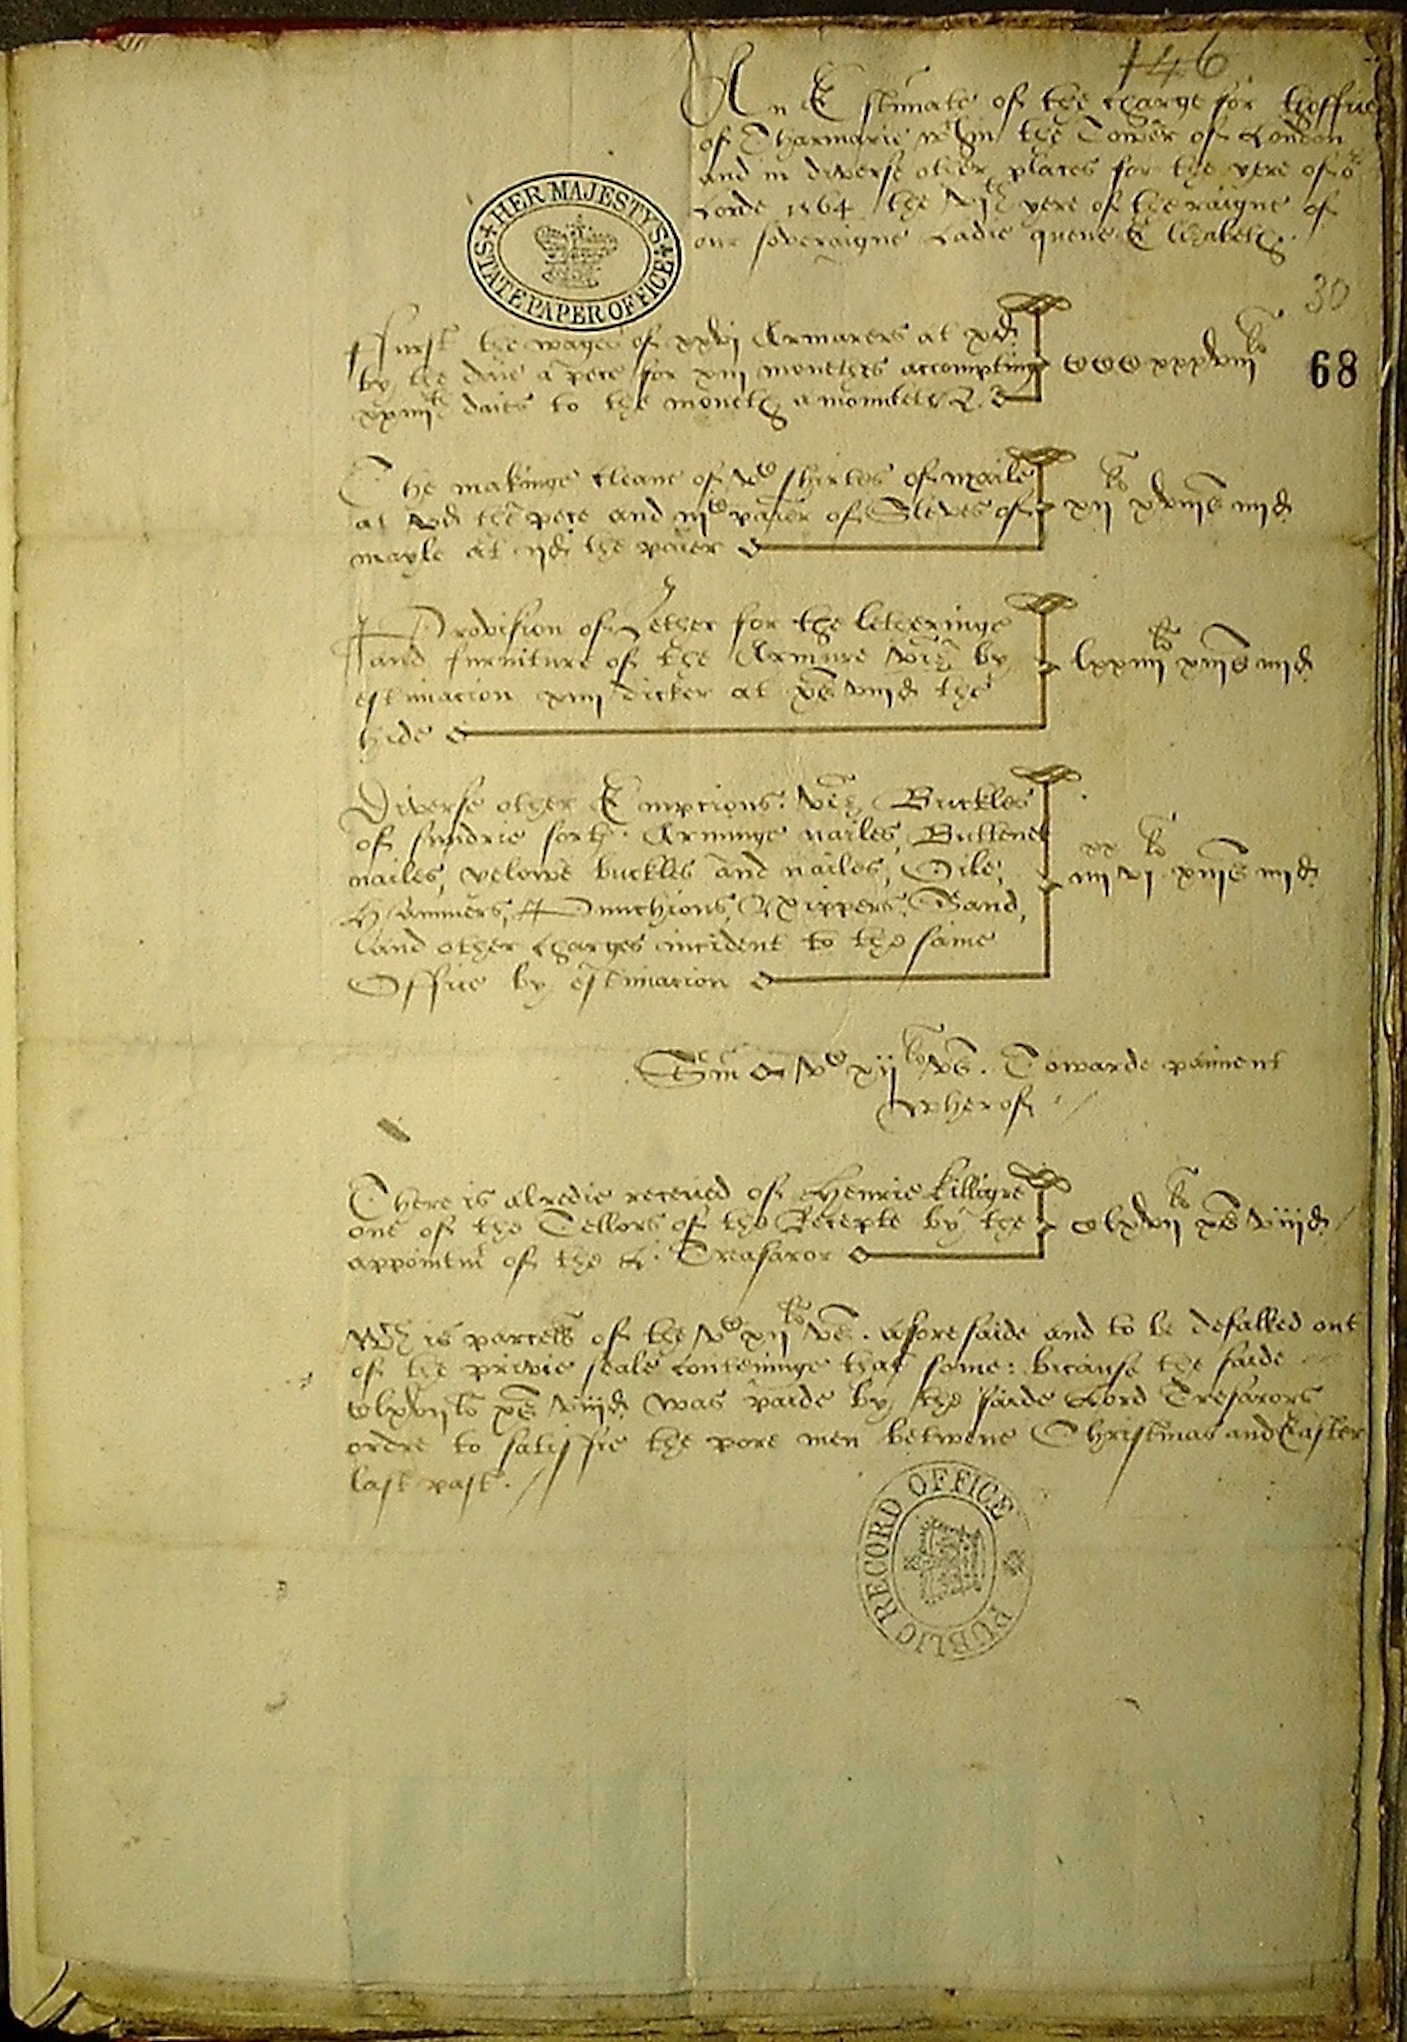 146
An Estimate of the charge for thoffice
of Tharmarie wthin the Tower of London
and in diverse other places for the yere of or
Lorde 1564 the vjth yere of the raigne of
our soveraigne Ladie quene Elizabeth.
HER MAJESTY'S STATE PAPER OFFICE
30
68
Furst the wages of xxvj Armarers at xd
by the daie a pece for xiij monethes accompting CCCxxxviijli
xxiiijtie daies to the moneth amounteth
The makinge cleane of vC shirtes of maile
at vd the pece and iijC paier of Sleves of xijli xviijs iiijd
mayle at ijd the paier
Provision of Lether for the letheringe
and furniture of the Armure viz by lxxiiijli xiijs iiijd
estimacion xiiij dicker at xs viijd the
hide
Diverse other Empcions viz Buckles
of sundrie sorts Arminge nailes, Buttened
nailes, yelowe buckles and nailes, Oile, iiijxx vjli xiijs iiijd
Hammers, Punchions, Nippers, Sand,
and other charges incident to the same
Office by estimacion
Sm vC xijli vs. Towarde paiment
wherof
There is alredie receued of Henrie Killigre
one of the Tellors of the Recepte by the Clxvijli xs viijd
appointmt of the L. Treasaror
Wch is parcell of the vC xijli vs. aforesaide and to be defalked out
of the privie seale conteininge that some: bicause the saide
Clxvijli xs viijd was paide by the saide Lord Tresarors
ordre to satisfie the pore men betwene Christmas and Easter
last past.
PUBLIC RECORD OFFICE